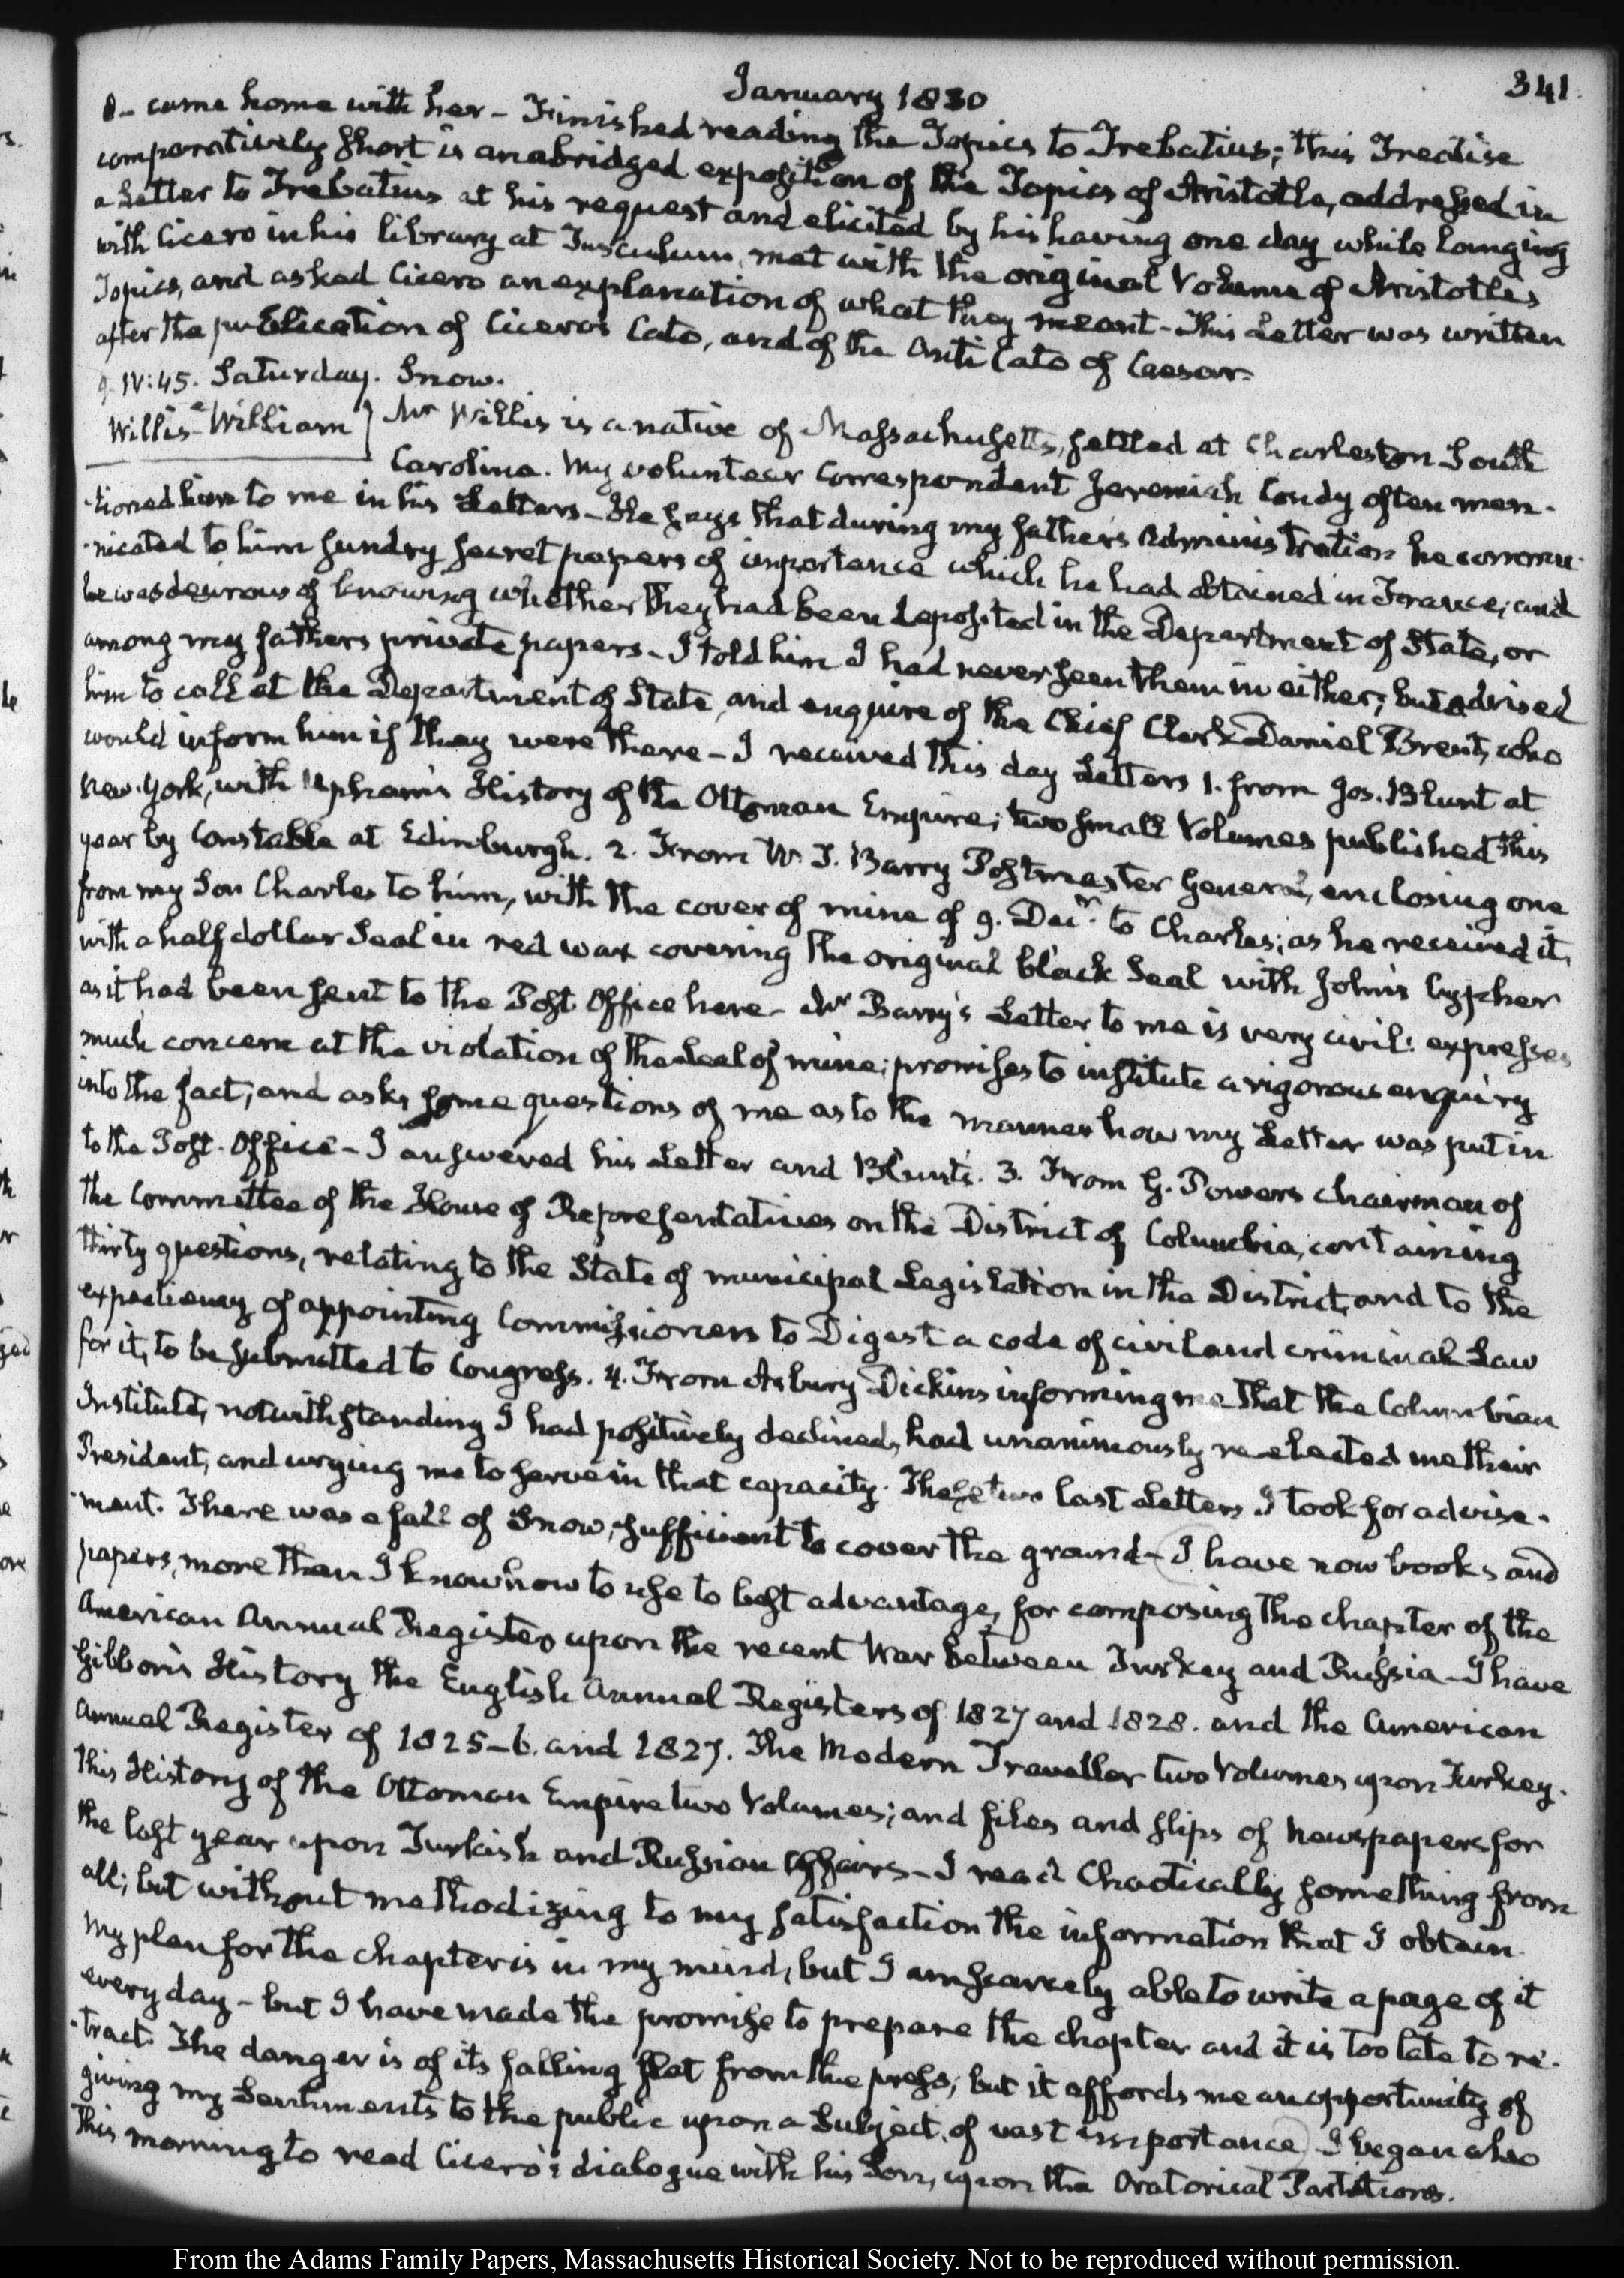 January 1830
341.
I - came home with her - Finished reading the Topics to Trebatius; this Treatise
comparatively short is an abridged exposition of the Topics of Aristotle, addressed in
a Letter to Trebatius at his request and elicited by his having one day while lounging
with Cicero in his library at Tusculum, met with the original Volume of Aristotle's
Topics, and asked Cicero an explanation of what they meant - This Letter was written
after the publication of Cicero's Cato, and of the Anti Cato of Caesar.
9. IV:45. Saturday. Snow.
Willis - William } Mr Willis is a native of Massachusetts, settled at Charleston South
Carolina. My volunteer Correspondent Jeremiah Condy often men-
-tioned him to me in his Letters - He says that during my father's Administration he commu-
-nicated to him sundry secret papers of importance which he had obtained in France; and
he was desirous of knowing whether they had been deposited in the Department of State, or
among my fathers private papers - I told him I had never seen them in either; but advised
him to call at the Department of State, and enquire of the Chief Clerk Daniel Brent, who
would inform him if they were there - I received this day Letters 1. from Jos. Blunt at
New-York, with Upham's History of the Ottoman Empire; two small Volumes published this
year by Constable at Edinburgh. 2. From W. T. Barry Postmaster General, enclosing one
from my Son Charles to him, with the cover of mine of 9. Decr. to Charles; as he received it,
with a half dollar Seal in red wax covering the original black Seal with John's Cypher
as it had been sent to the Post Office here - Mr Barry's Letter to me is very civil: expresses
much concern at the violation of the Seal of mine; promises to institute a rigorous enquiry
into the fact; and asks some questions of me as to the manner how my Letter was put in
to the Post-Office - I answered his Letter and Blunt's. 3. From G. Powers chairman of
the Committee of the House of Representatives on the District of Columbia, containing
thirty questions, relating to the State of municipal Legislation in the District, and to the
expediency of appointing Commissioners to Digest a code of civil and criminal Law
for it, to be submitted to Congress. 4. From Asbury Dickins informing me that the Columbian
Institute, notwithstanding I had positively declined, had unanimously re-elected me their
President, and urging me to serve in that capacity. These two last Letters I took for advise-
-ment. There was a fall of Snow, sufficient to cover the ground - I have now books and
papers, more than I know how to use to best advantage, for composing the chapter of the
American Annual Register upon the recent War between Turkey and Russia - I have
Gibbon's History the English Annual Registers of 1827 and 1828. and the American
Annual Register of 1825-6. and 1827. The Modern Traveller two Volumes upon Turkey.
This History of the Ottoman Empire two Volumes; and files and slips of Newspapers for
the last year upon Turkish and Russian Affairs - I read Chaotically something from
all; but without methodizing to my satisfaction the information that I obtain.
My plan for the chapter is in my mind, but I am scarcely able to write a page of it
every day - but I have made the promise to prepare the chapter and it is too late to re-
-tract. The danger is of its falling flat from the press; but it affords me an opportunity of
giving my Sentiments to the public upon a Subject of vast importance) I began also
this morning to read Cicero's dialogue with his Son, upon the Oratorical Partitions.
From the Adams Family Papers, Massachusetts Historical Society. Not to be reproduced without permission.